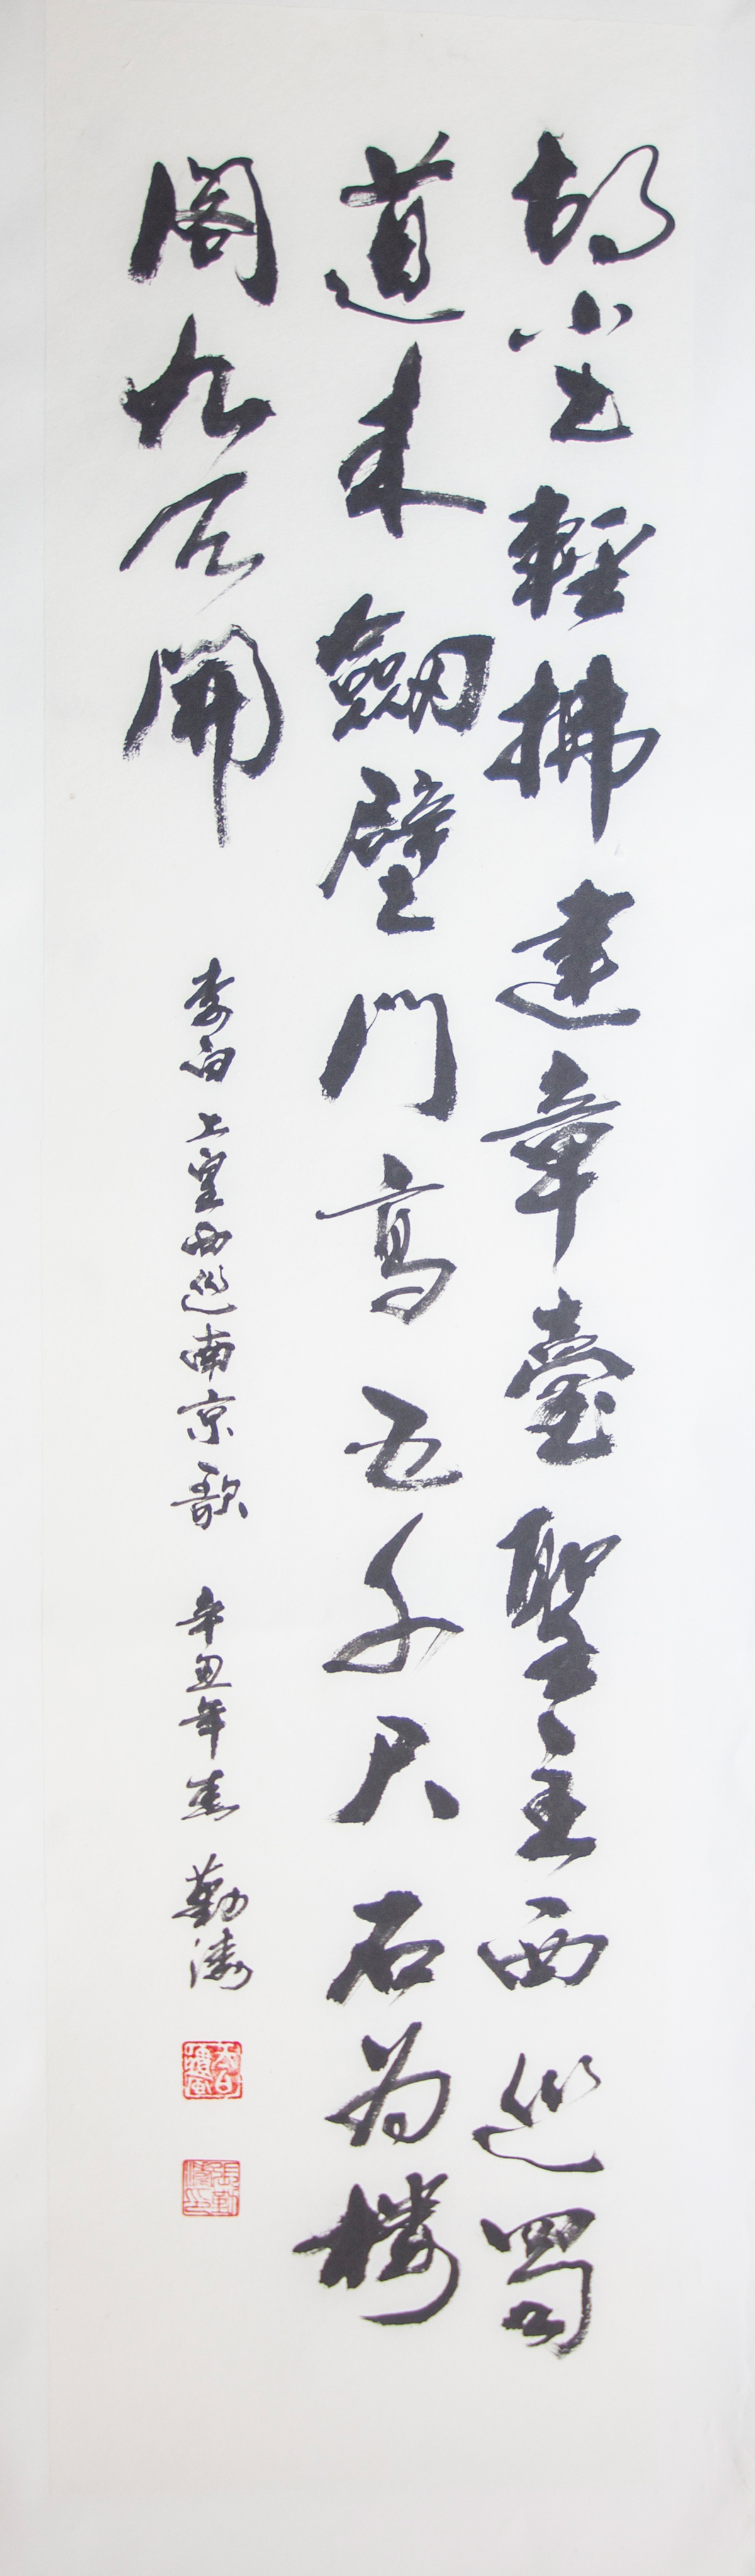 胡尘輕拂建章臺聖主西巡蜀
道来劔壁門高五千尺石为楼
阁九天開
李白上皇西巡南京歌 辛丑年春 勤涛